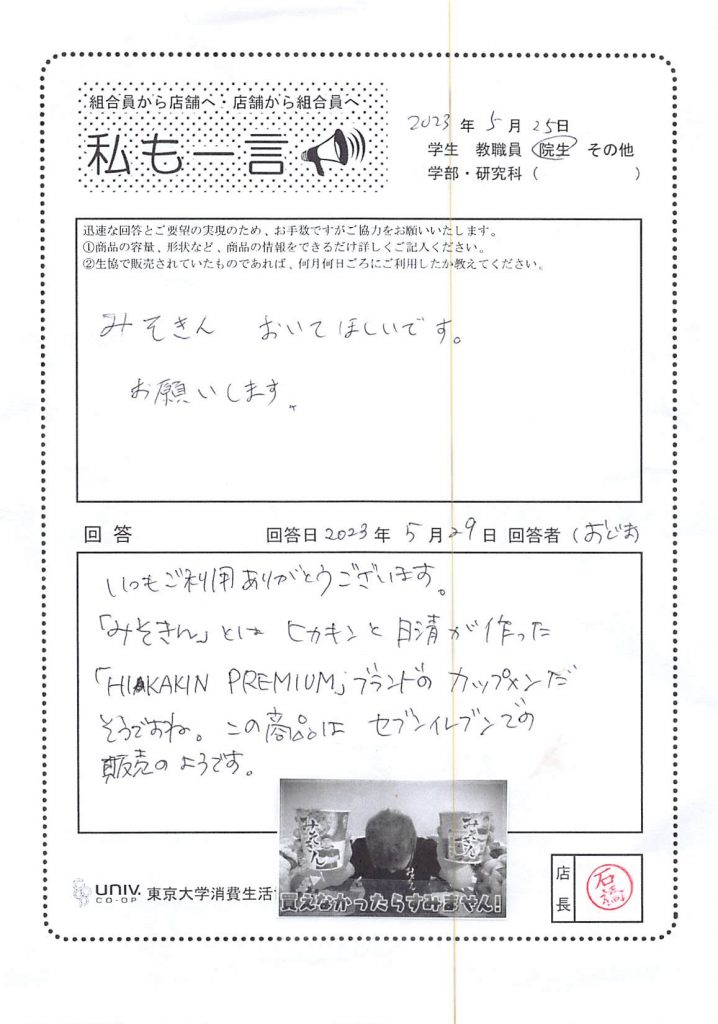 組合員から店舗へ・店舗から組合員へ
私も一言
2023年5月25日
学生 教職員 院生 その他
学部・研究科( )
迅速な回答とご要望の実現のため、お手数ですがご協力をお願いいたします。
①商品の容量、形状など、商品の情報をできるだけ詳しくご記入ください。
②生協で販売されていたものであれば、何月何日ごろにご利用したか教えてください。
みそきん おいてほしいです。
お願いします。
回答 回答日2023年5月29日 回答者(おどお
いつもご利用ありがとうございます。
「みそきん」とは ヒカキンと日清が作った
「HIKAKIN PREMIUM」ブランドのカップメンだ
そうですね。この商品は セブンイレブンでの
販売のようです。
みそきん
みそきん
みそきん
買えなかったらすみません!
UNIV. CO-OP 東京大学消費生活
店長